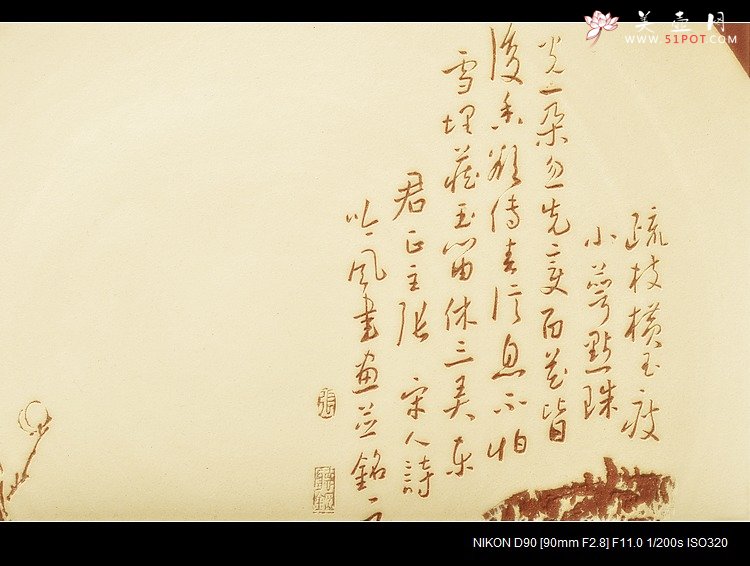 美壺网
WWW.51POT.COM
疏枝橫玉瘦
小萼點珠
光一朵忽先變百花皆
後香欲傳春信息不怕
雪埋藏玉笛休三弄東
君正主張 宋人詩
吟風書畫並銘
張
NIKON D90 [90mm F2.8] F11.0 1/200s ISO320